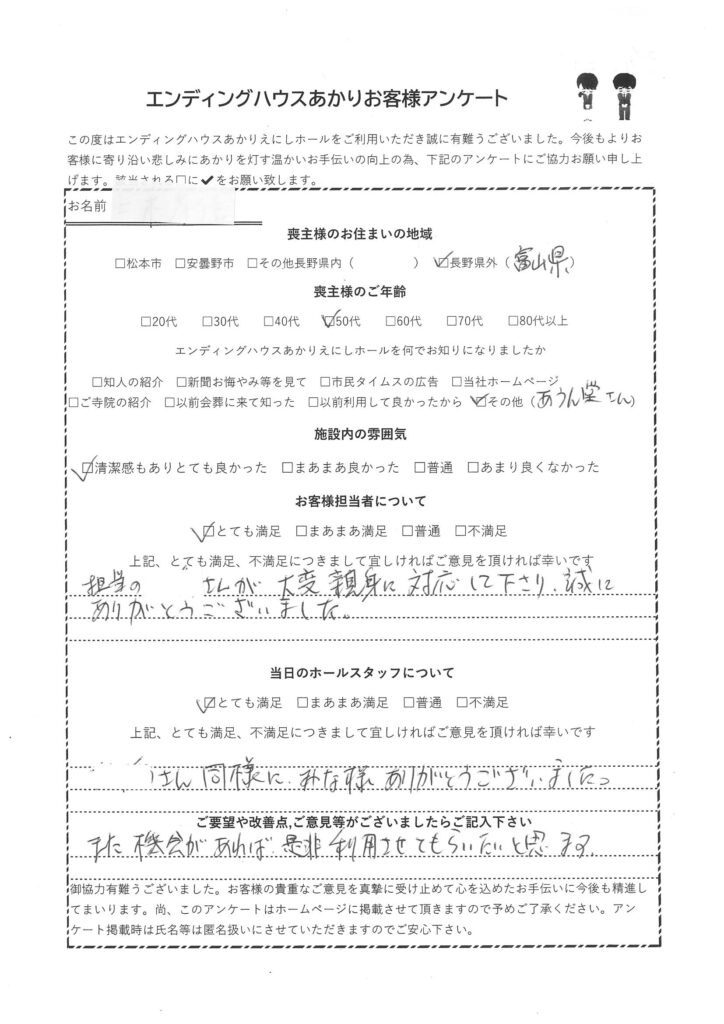 エンディングハウスあかりお客様アンケート
この度はエンディングハウスあかりえにしホールをご利用いただき誠に有難うございました。今後もよりお
客様に寄り沿い悲しみにあかりを灯す温かいお手伝いの向上の為、下記のアンケートにご協力お願い申し上
げます。該当される□に✔をお願い致します。
お名前
喪主様のお住まいの地域
□松本市 □安曇野市 □その他長野県内（ ） ☑長野県外（富山県）
喪主様のご年齢
□20代 □30代 □40代 ☑50代 □60代 □70代 □80代以上
エンディングハウスあかりえにしホールを何でお知りになりましたか
□知人の紹介 □新聞お悔やみ等を見て □市民タイムスの広告 □当社ホームページ
□ご寺院の紹介 □以前会葬に来て知った □以前利用して良かったから ☑その他（あうん堂さん）
施設内の雰囲気
☑清潔感もありとても良かった □まあまあ良かった □普通 □あまり良くなかった
お客様担当者について
☑とても満足 □まあまあ満足 □普通 □不満足
上記、とても満足、不満足につきまして宜しければご意見を頂ければ幸いです
担当の さんが 大変親身に対応して下さり、誠に
ありがとうございました。
当日のホールスタッフについて
☑とても満足 □まあまあ満足 □普通 □不満足
上記、とても満足、不満足につきまして宜しければご意見を頂ければ幸いです
さん同様に、みな様ありがとうございました。
ご要望や改善点,ご意見等がございましたらご記入下さい
また機会があれば是非利用させてもらいたいと思います。
御協力有難うございました。お客様の貴重なご意見を真摯に受け止めて心を込めたお手伝いに今後も精進し
てまいります。尚、このアンケートはホームページに掲載させて頂きますので予めご了承ください。アン
ケート掲載時は氏名等は匿名扱いにさせていただきますのでご安心下さい。